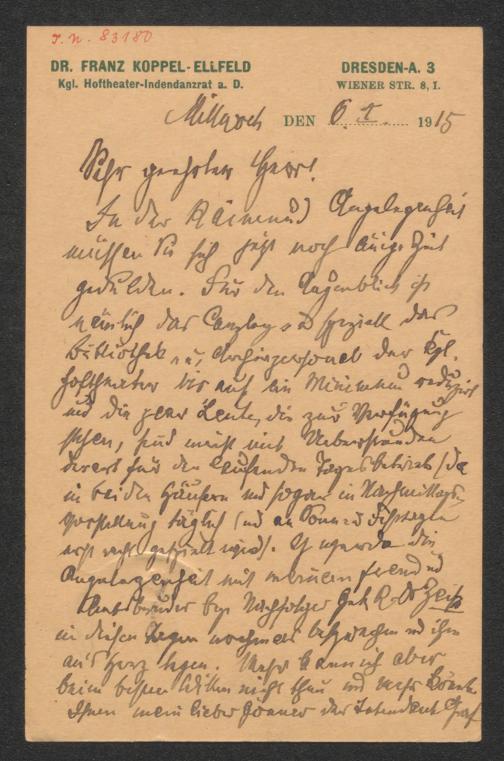 I. N. 83180
DR. FRANZ KOPPEL-ELLFELD
Kgl. Hoftheater-Indendanzrat a. D.
DRESDEN-A. 3
WIENER STR. 8, I.
Mittwoch DEN 6. X. 1915
Sehr geehrter Herr!
In der Raimund Angelegenheit
müssen Sie sich jetzt noch einige Zeit
gedulden. Für den Augenblick ist
nämlich das Canzlei- u speziell das
Bibliothek u. Archivpersonal der Kgl.
Hoftheater bis auf ein Minimum reduziert
und die paar Leute, die zur Verfügung
stehen, sind meist mit Ueberstunden
derart für den laufenden Tagesbetrieb (da
in beiden Häusern und sogar in Nachmittags-
vorstellung täglich (und an Sonn- u Festtagen
erst recht gespielt wird). Ich werde die
Angelegenheit mit meinem Freund und
Amtsbruder bez. Nachfolger Hofr. Dr Zeiß
in diesen Tagen nochmals besprechen und ihm
an's Herz legen. Mehr kann ich aber
beim besten Willen nicht thun und mehr könnte
Ihnen mein lieber Gönner der Intendant Graf